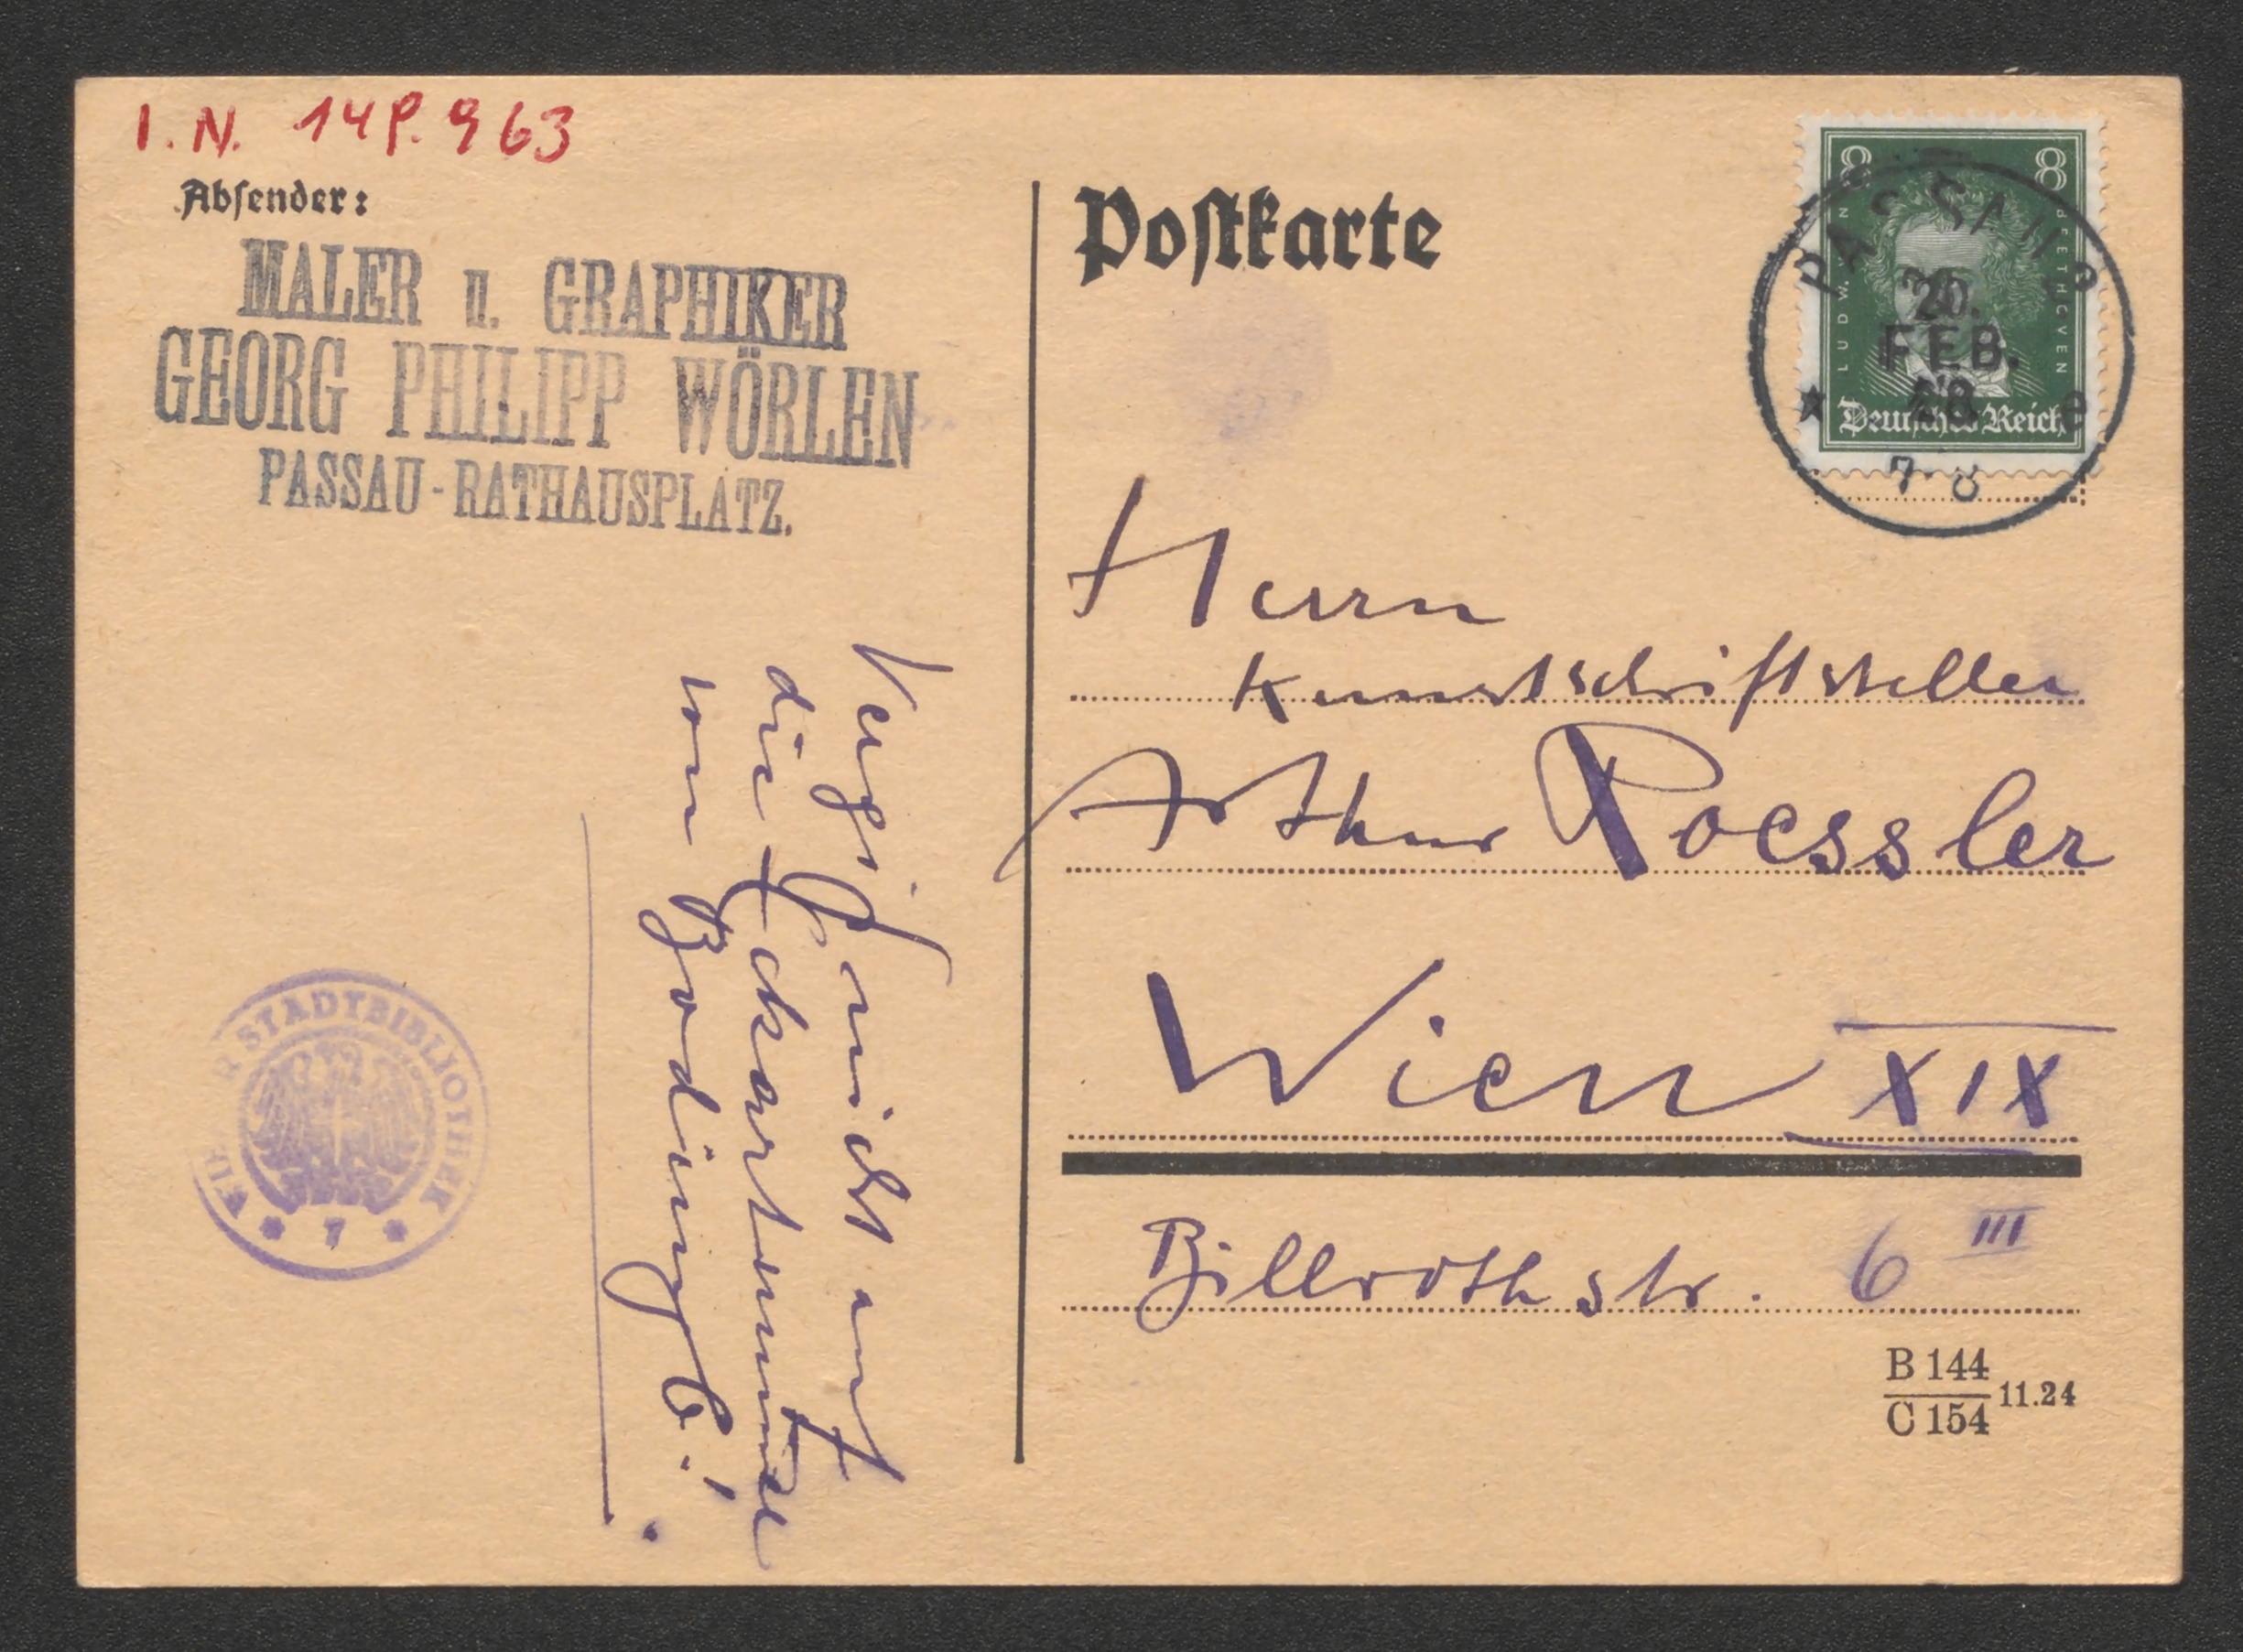 I. N. 148.963
Absender:
MALER u. GRAPHIKER
GEORG PHILIPP WÖRLEN
PASSAU-RATHAUSPLATZ.
Postkarte
8 8
LUDW. VAN BEETHOVEN
Deutsches Reich
PASSAU 2
20.
FEB.
28
7-8
Herrn
Kunstschriftsteller
Arthur Roessler
Wien XIX
Billrothstr. 6 III
B 144
C 154
11.24
nicht auf
die
von
STADTBIBLIOTHEK
* 7 *